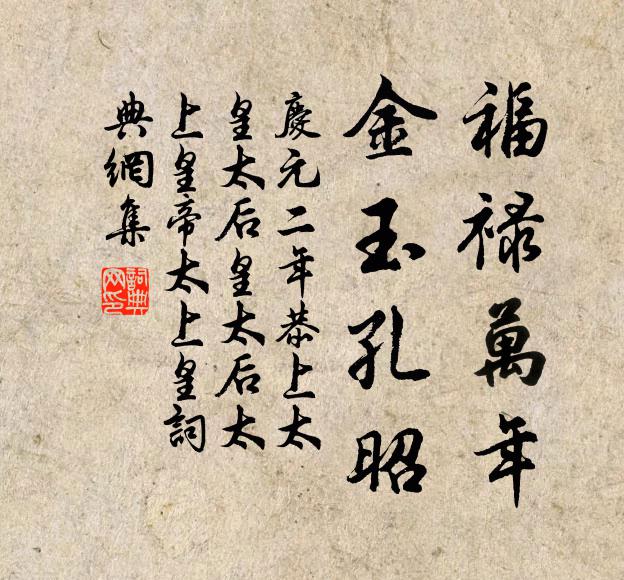 福禄萬年
金玉孔昭
慶元二年恭上太
皇太后皇太后太
上皇帝太上皇詞
典網集
詞典網印